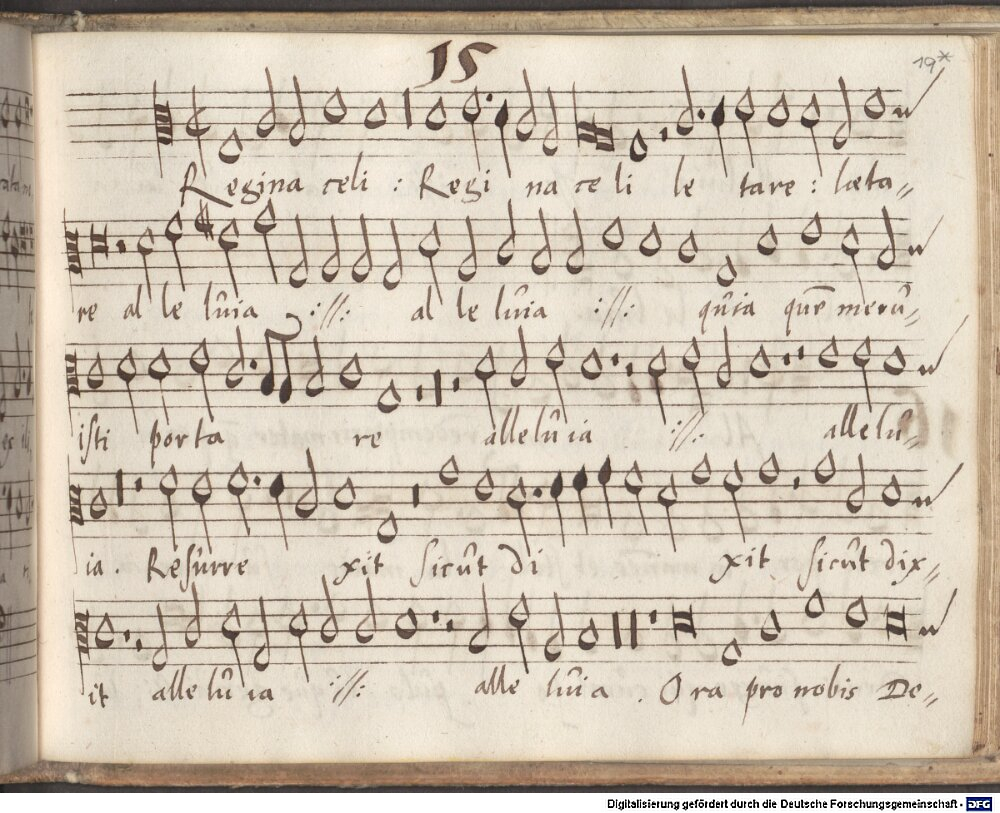 15
19*
Regina celi : Regi na celi le tare : læta-
re al le lũia ://: al le lũia ://: qũia quẽ merũ-
isti porta re allelũia ://: allelũ-
ia Resũrre xit sicũt di xit sicũt dix-
it allelũia ://: alle lũia Ora pro nobis De-
Digitalisierung gefördert durch die Deutsche Forschungsgemeinschaft - DFG